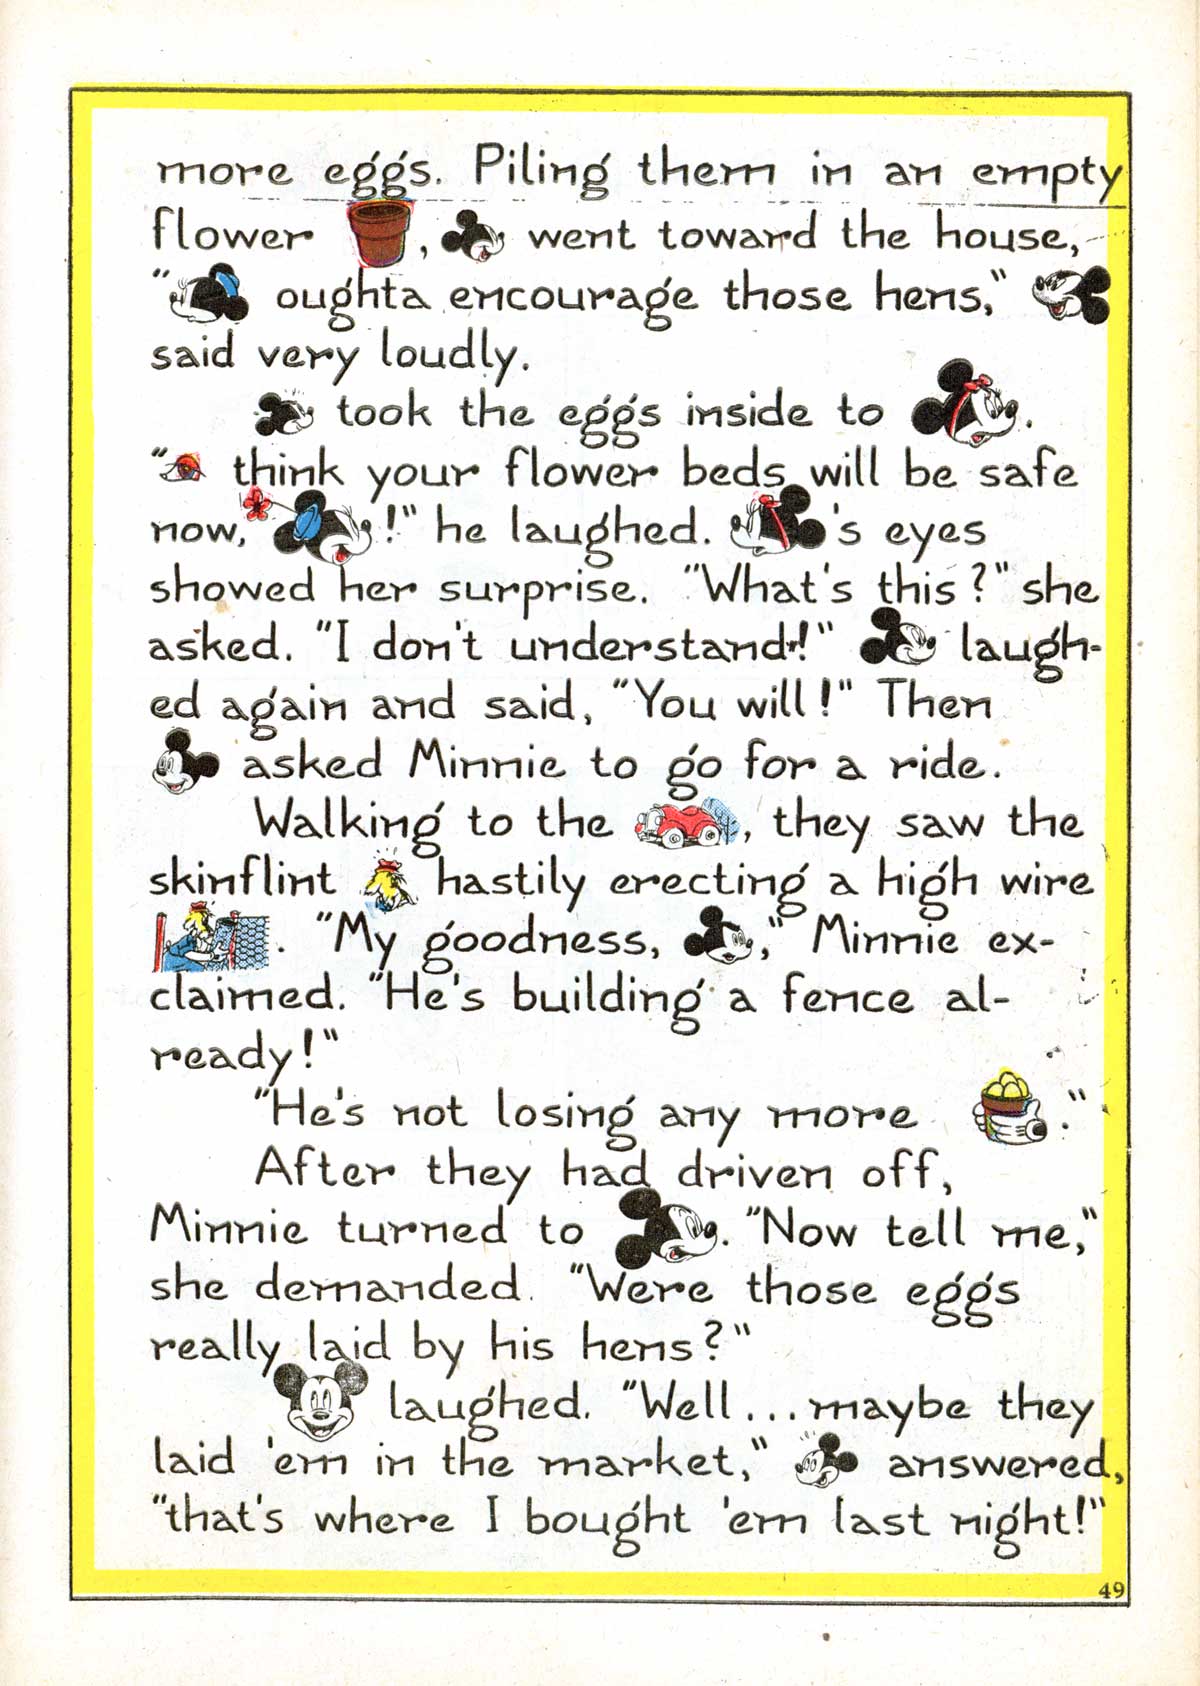 more eggs. Piling them in an empty
flower , went toward the house,
" oughta encourage those hens,"
said very loudly.
took the eggs inside to .
" think your flower beds will be safe
now, !" he laughed. 's eyes
showed her surprise. "What's this?" she
asked. "I don't understand!" laugh-
ed again and said, "You will!" Then
asked Minnie to go for a ride.
Walking to the , they saw the
skinflint hastily erecting a high wire
. "My goodness, ," Minnie ex-
claimed. "He's building a fence al-
ready!"
"He's not losing any more ."
After they had driven off,
Minnie turned to . "Now tell me,"
she demanded. "Were those eggs
really laid by his hens?"
laughed. "Well...maybe they
laid 'em in the market," answered,
"that's where I bought 'em last night!"
49